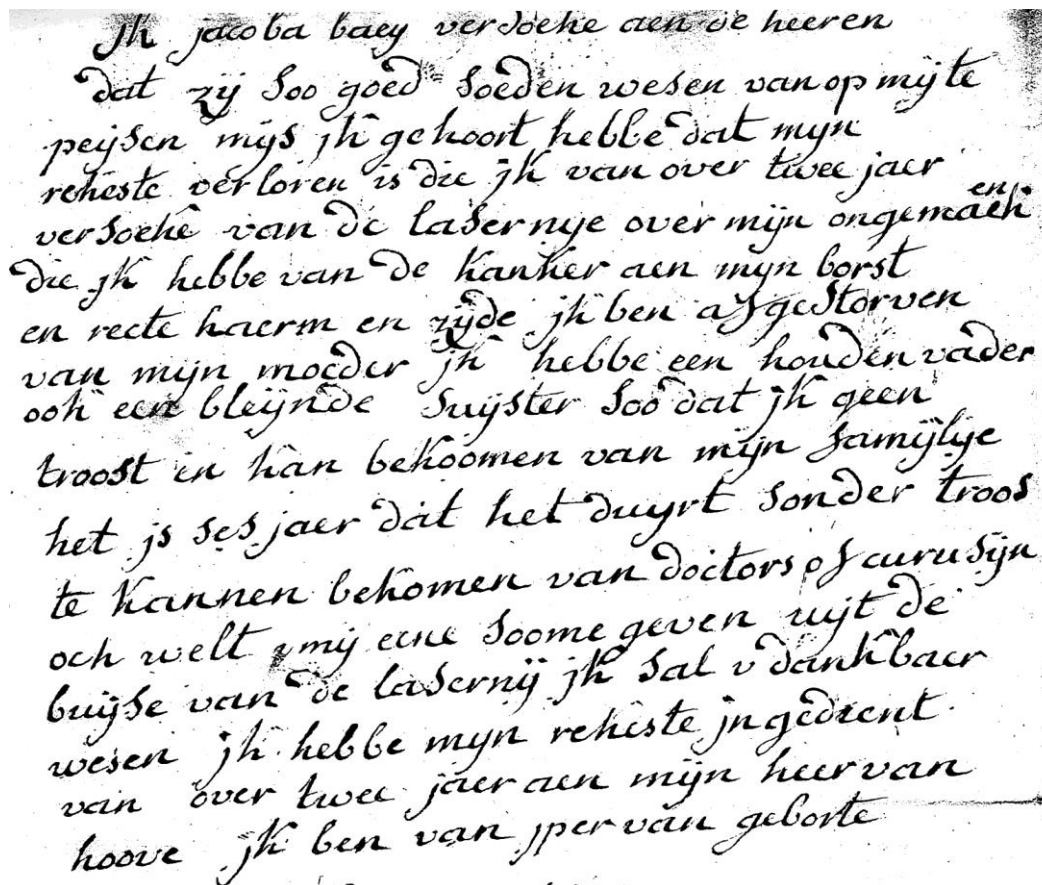 Jk jacoba baey versoeke aen de heeren
dat zij soo goed soeden wesen van op mij te
peijsen mijs jk gehoort hebbe dat mijn
rekeste verloren is die jk van over twee jaer
versoeke van de lasernye over mijn ongemaeken
die jk hebbe van de kanker aen mijn borst
en recte haerm en zijde jk ben afgestorven
van mijn moeder jk hebbe een houden vader
ook een bleijnde suijster soo dat jk geen
troost en kan bekoomen van mijn familje
het js ses jaer dat het duyrt sonder troos
te kannen bekomen van doctors of curusijn
och welt mij eene soome geven uijt de
buijse van de lasernij jk sal v dankbaer
wesen jk hebbe mijn rekeste jngedient
van over twee jaer aen mijn heer van
hoove jk ben van jper van geborte